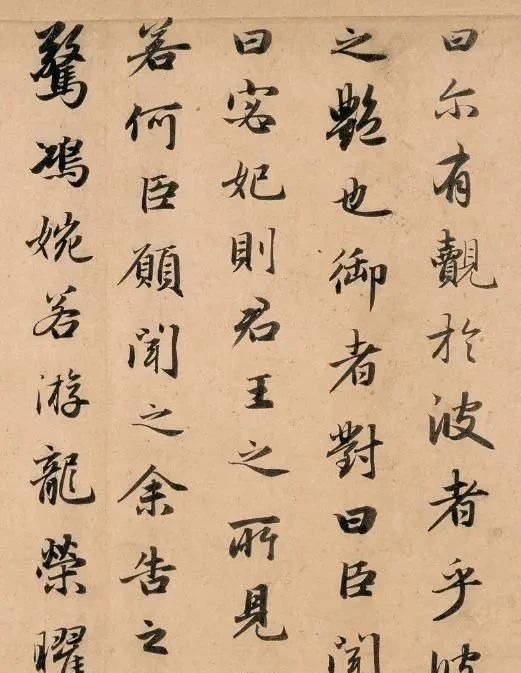 曰尔有觌於彼者乎彼
之艷也御者對曰臣聞
曰宓妃則君王之所見
若何臣願聞之余告之
驚鴻婉若游龍榮曜